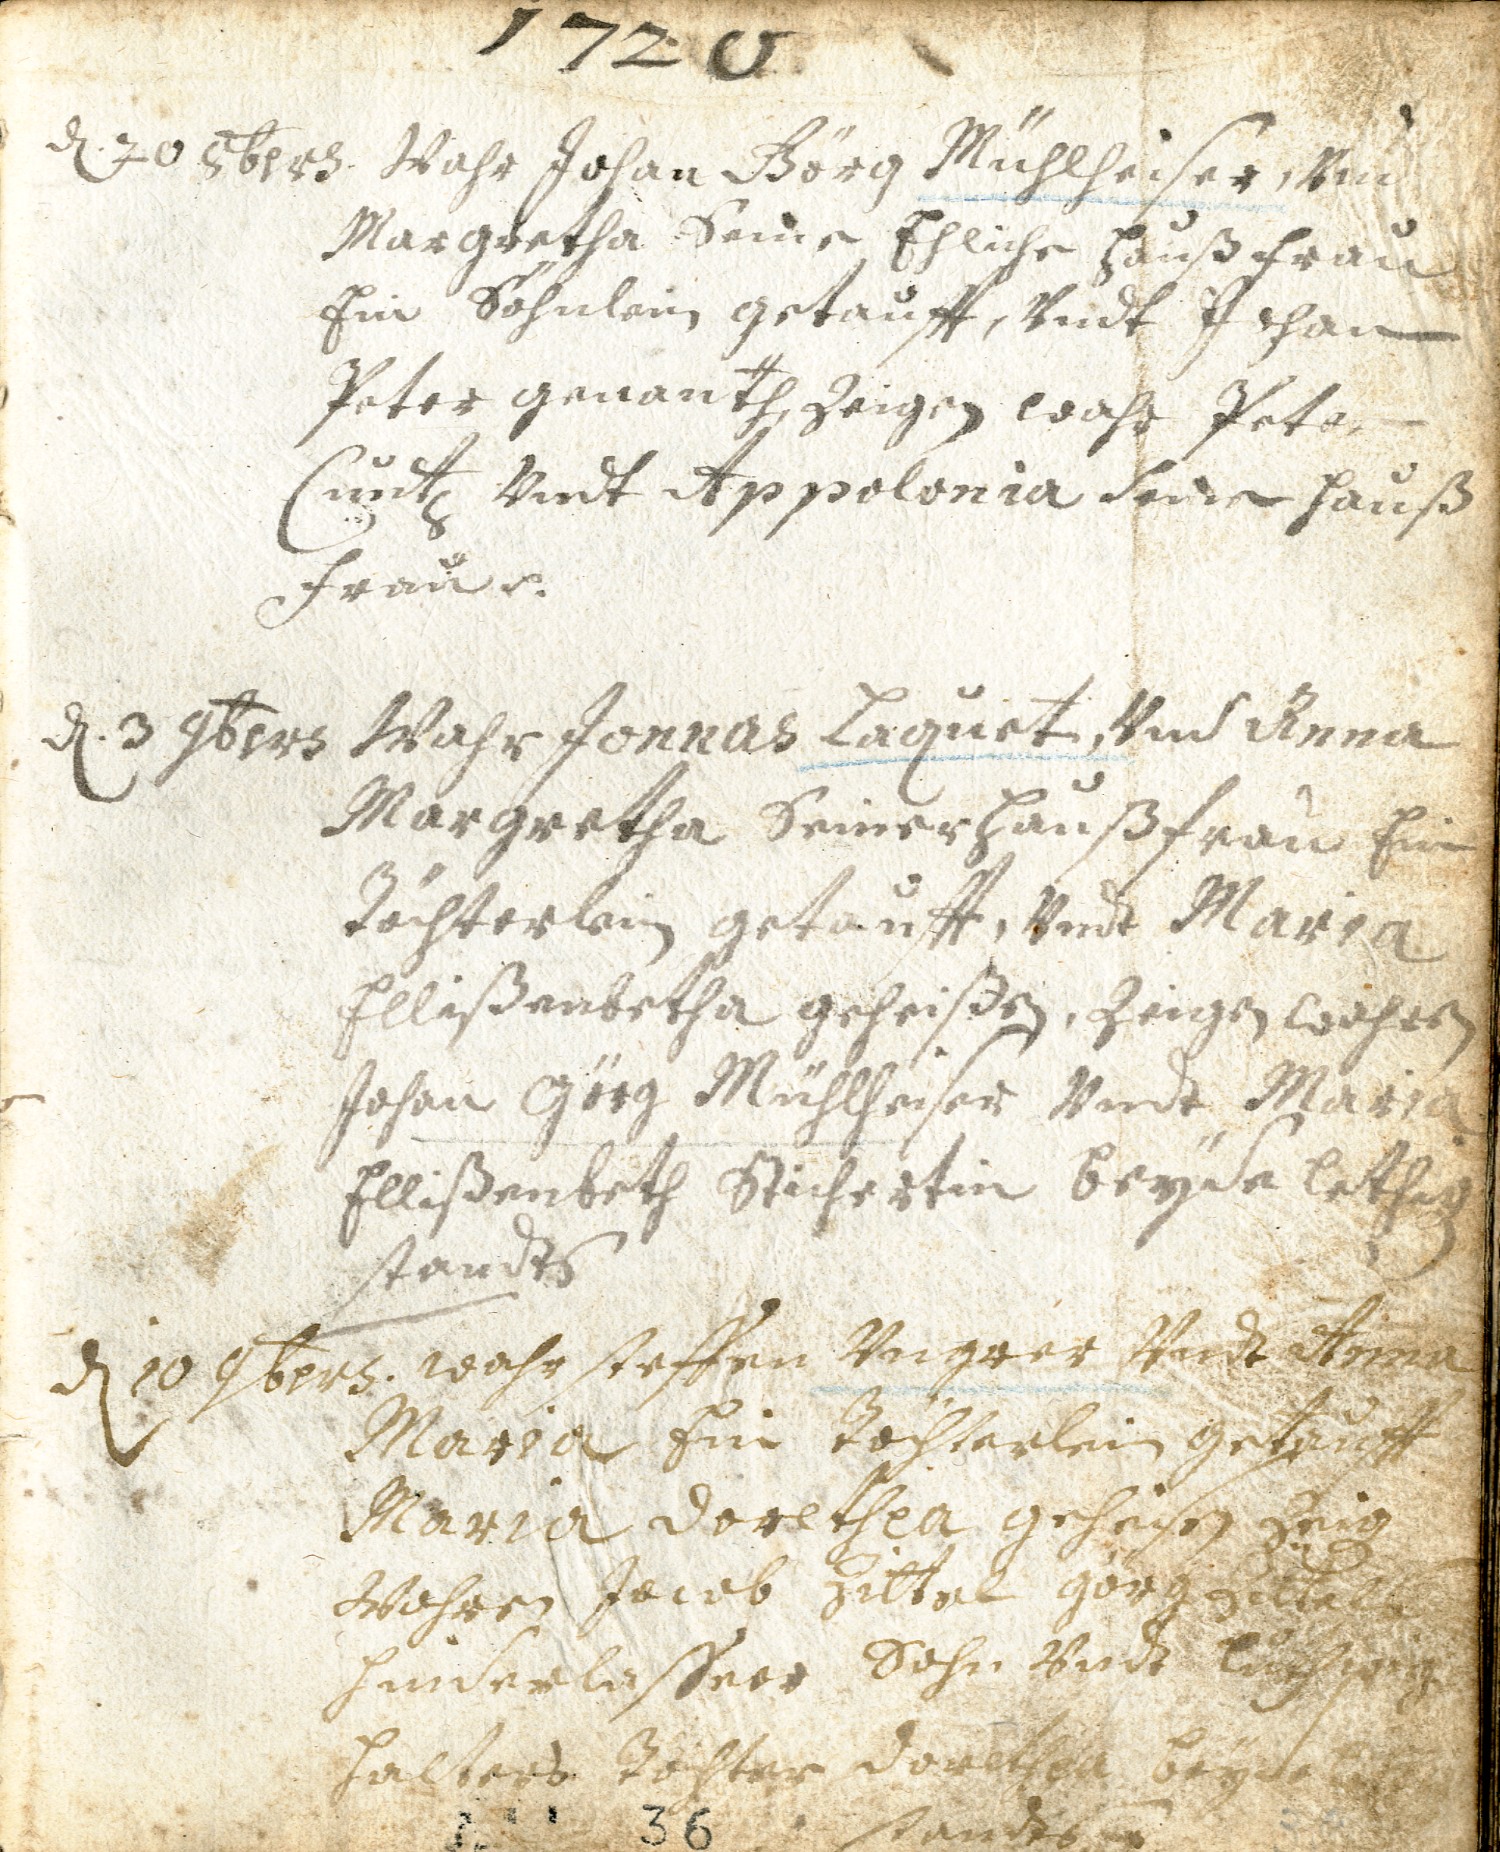 1720
d. 20 8bers. Wahr Johan Görg Mühlheiser, Und
Margretha Seine Ehliche haußfrau
Ein Söhnlein getaufft, Undt Johan
Peter genanth, Zeigen wahr Peter
Cuntz Undt Appolonia seine hauß
frau
d. 3 9bers Wahr Jonnas Laquet, Und Anna
Margretha Seiner haußfrau Ein
Töchterlein getaufft, Undt Maria
Ellißenbetha geheißen, Zeigen wahren
Johan Görg Mühlheiser Undt Maria
Ellißenbeth Stichertin beyde lethig
standts
d 10 9bers. wahr steffen Ungrer Undt Anna
Maria Ein Töchterlein getaufft
Maria dorethea geheisen Zeig
Wahren Jacob Zittel görg Zittels
hinderlaßener Sohn Undt
halters Tochter dorethea beyde
standts
36